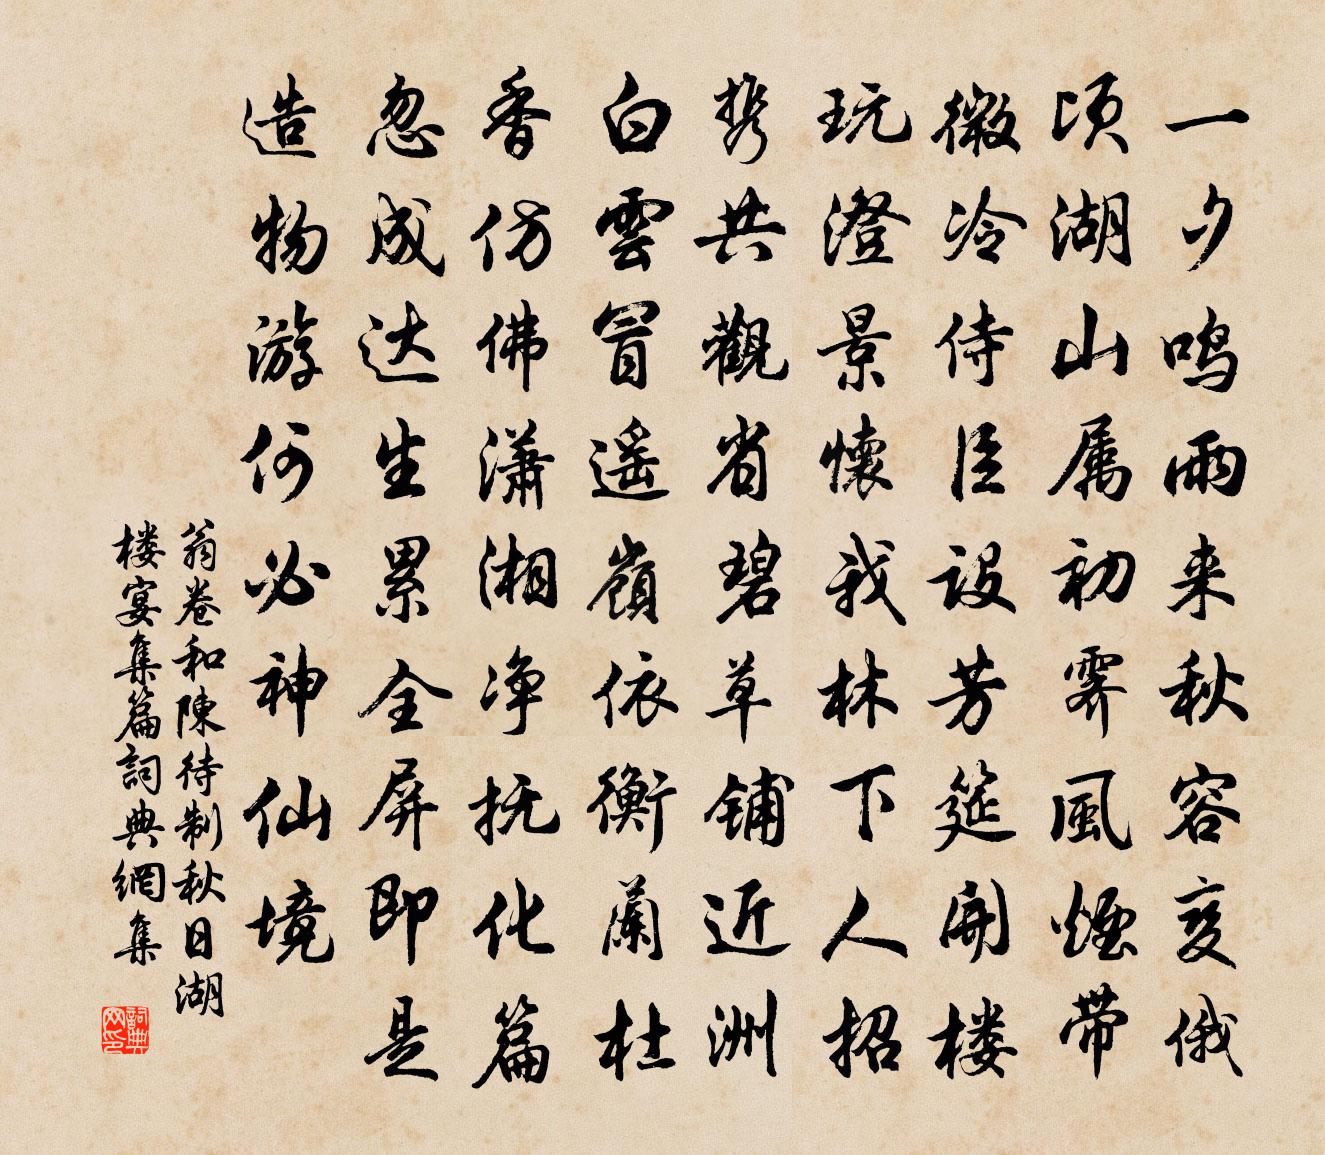 一夕鸣雨来秋容变俄
顷湖山属初霽風煙带
微冷侍臣設芳筵開楼
玩澄景懷我林下人招
携共觀省碧草铺近洲
白雲冒遥嶺依衡蘭杜
香仿佛瀟湘净抚化篇
忽成达生累全屏即是
造物游何必神仙境
翁卷和陳待制秋日湖
楼宴集篇詞典網集
詞典网印